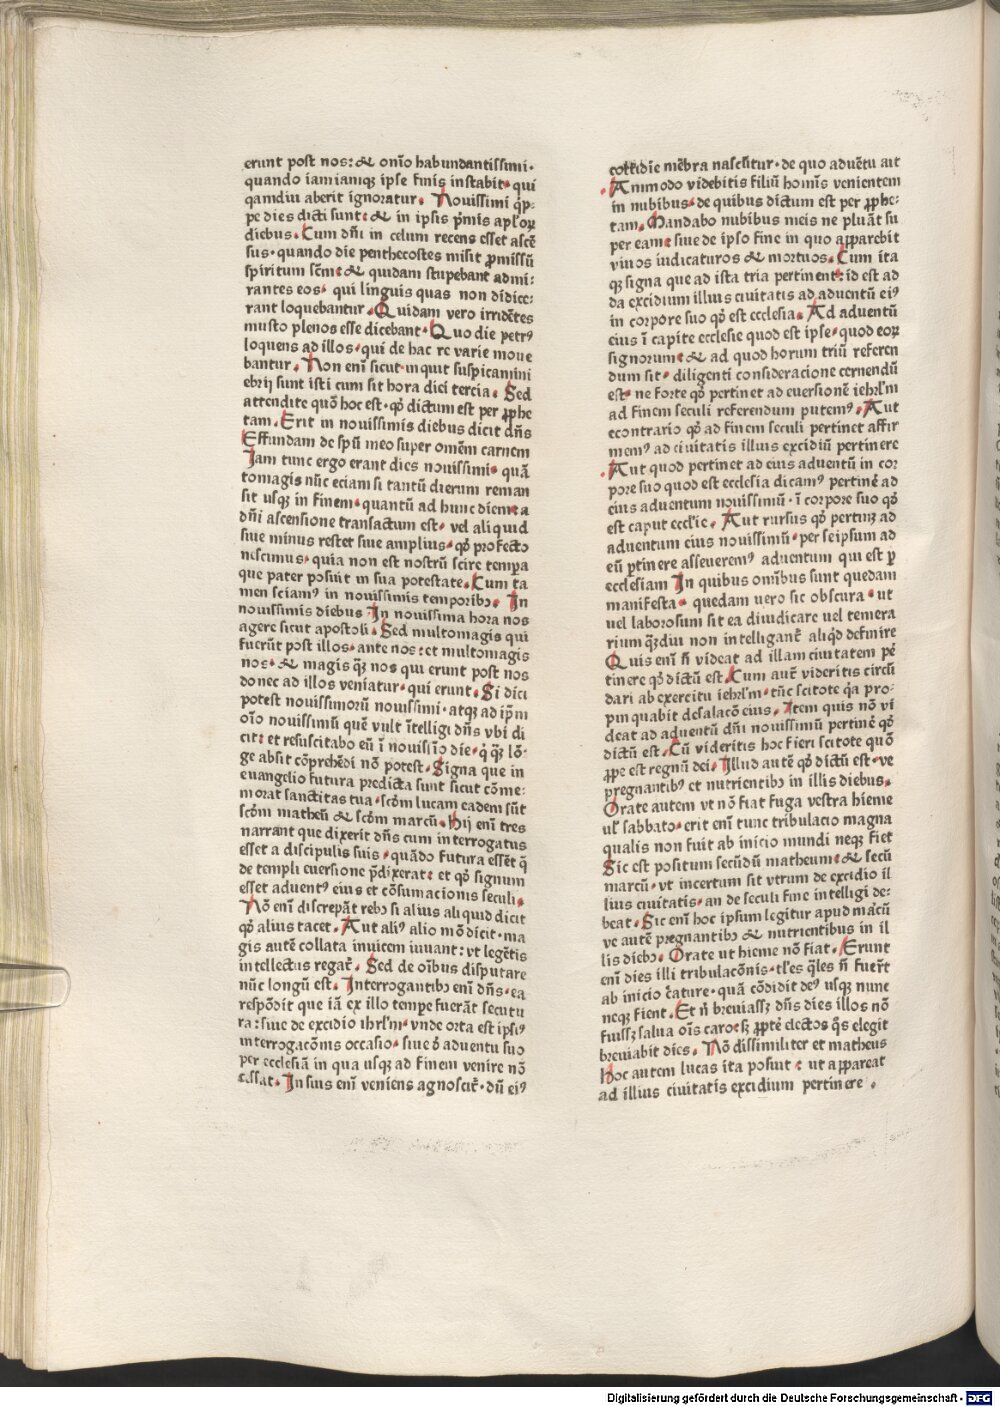 erunt post nos: & om̄o habundantissimi·
quando iamiamqꝫ ipse finis instabit· qui
qamdiu aberit ignoratur. Nouissimi q̄p-
pe dies dicti sunt: & in ipsis p̄mis apl'oꝝ
diebus. Cum dn̄i in celum recens esset ascē
sus· quando die penthecostes misit ꝓmissū
spiritum sc̄m: & quidam stupebant admi-
rantes eos· qui linguis quas non didice-
rant loquebantur. Quidam vero irridētes
musto plenos esse dicebant. Quo die petrꝰ
loquens ad illos· qui de hac re varie moue
bantur. Non eni͂ sicut inquit suspicamini
ebrij sunt isti cum sit hora diei tercia. Sed
attendite quō hoc est· qđ dictum est per ꝓphe
tam. Erit in nouissimis diebus dicit dn̄s
Effundam de spū meo super omēm carnem
Iam tunc ergo erant dies nouissimi· quā
tomagis nūc eciam si tantū dierum reman
sit usqꝫ in finem· quantū ad hunc diem· a
dn̄i ascensione transactum est· vel aliquid
siue minus restet siue amplius· qđ profecto
nescimus· quia non est nostrū scire tempora
que pater posuit in sua potestate. Cum ta
men sciamꝰ in nouissimis temporibꝫ. In
nouissimis diebus In nouissima hora nos
agere sicut apostoli. Sed multomagis qui
fuerūt post illos· ante nos: et multomagis
nos· & magis qꝫ nos qui erunt post nos
donec ad illos veniatur· qui erunt. Si dici
potest nouissimorū nouissimi· atqꝫ ad ip̄m
om̄o nouissimū quē vult ītelligi dn̄s vbi di
cit: et resuscitabo eū ī nouissīo die· q̇ qꝫ lō-
ge absit cōprehēdi nō potest. Signa que in
euangelio futura predicta sunt sicut cōme-
morat sanctitas tua· scđm lucam eadem sūt
scđm matheū & scđm marcū. Hij enī tres
narrant que dixerit dn̄s cum interrogatus
esset a discipulis suis· quādo futura essēt q̄
de templi euersione p̄dixerat: et qđ signum
esset aduentꝰ eius et cōsumacionis seculi.
Nō enī discrepāt rebꝫ si alius aliquid dicit
qđ alius tacet. Aut aliꝰ alio mō dicit· ma
gis autē collata inuicem iuuant: vt legētis
intellectus regat͛. Sed de oībus disputare
nūc longū est. Interrogantibꝫ enī dn̄s· ea
respōdit que iā ex illo tempe fuerāt secutu
ra: siue de excidio ihrl'm· vnde orta est ipsiꝰ
interrogacōnis occasio· siue ð aduentu suo
per ecclesiā in qua usqꝫ ad finem venire nō
cessat. In suis enī veniens agnoscit͛· dū eiꝰ
cottidie mēbra nascūtur· de quo aduētu ait
Ammodo videbitis filiū homīs venientem
in nubibus· de quibus dictum est per ꝓphe-
tam. Mandabo nubibus meis ne pluāt su
per eam: siue de ipso fine in quo apparebit
viuos iudicaturos & mortuos. Cum ita
qꝫ signa que ad ista tria pertinent: id est ad
da excidium illius ciuitatis ad aduentū eiꝰ
in corpore suo qđ est ecclesia. Ad aduentū
eius ī capite ecclesie quod est ipse· quod eoꝝ
signorum: & ad quod horum triū referen
dum sit· diligenti consideracione cernendū
est· ne forte qđ pertinet ad euersionē iehrl'm
ad finem seculi referendum putemꝰ. Aut
econtrario qđ ad finem seculi pertinet affir
memꝰ ad ciuitatis illius excidiū pertinere
Aut quod pertinet ad eius aduentū in cor
pore suo quod est ecclesia dicamꝰ pertinēe ad
eius aduentum nouissimū· ī corpore suo qđ
est caput eccl'ie. Aut rursus qđ pertinꝫ ad
aduentum eius nouissimū· per seipsum ad
eū ꝑtinere asseueremꝰ aduentum qui est ꝑ
ecclesiam In quibus omībus sunt quedam
manifesta· quedam uero sic obscura· ut
uel laborosum sit ea diiudicare uel temera
rium q̄zdiu non intelligant͛ aliqđ definire
Quis enī n̄ videat ad illam ciuitatem pē
tinere qđ dictū est. Cum aut͛ videritis circū
dari ab exercitu iehrl'm· tūc scitote q̄a pro-
pinquabit desolacō eius. Item quis nō vi
deat ad aduentū dn̄i nouissimū pertinē qđ
dictū est. Cū videritis hoc fieri scitote quō
ꝓpe est regnū dei. Illud autē qđ dictū est· ve
pregnantibꝰ et nutrientibꝫ in illis diebus.
Orate autem vt nō fiat fuga vestra hieme
ul' sabbato· erit enī tunc tribulacio magna
qualis non fuit ab inicio mundi neqꝫ fiet
Sic est positum secūdū matheum: & secū
marcū· vt incertum sit vtrum de excidio il
lius ciuitatis· an de seculi fine intelligi de-
beat. Sic enī hoc ipsum legitur apud mar̄cū
ve autē pregnantibꝫ & nutrientibus in il
lis diebꝫ. Orate ut hieme nō fiat. Erunt
enī dies illi tribulacōnis· tl'es q̄les n̄ fuer̄t
ab inicio c͛ature· quā cōdidit deꝰ usqꝫ nunc
neqꝫ fient. Et n̄ breuiassꝫ dn̄s dies illos nō
fuissꝫ salua oīs caro: sꝫ ꝓptē electos q̄s elegit
breuiabit dies. Nō dissimiliter et matheus
Hoc autem lucas ita posuit: ut appareat
ad illius ciuitatis excidium pertinere.
Digitalisierung gefördert durch die Deutsche Forschungsgemeinschaft - DFG